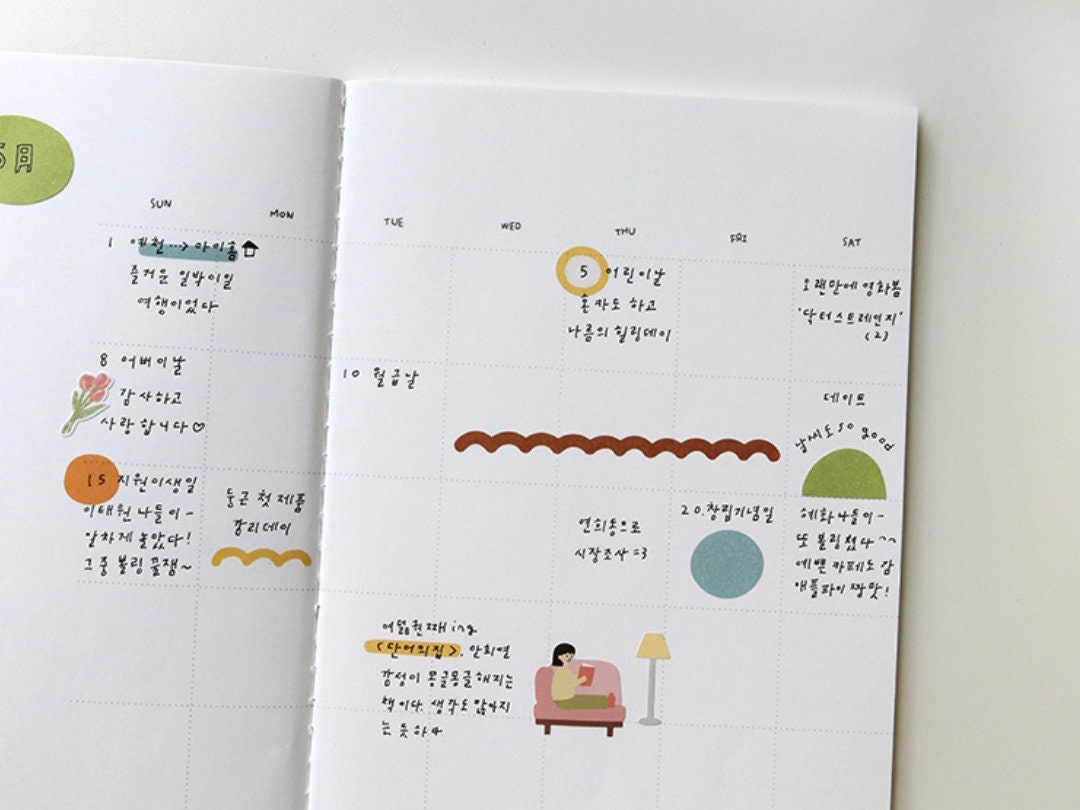 5月
SUN
MON
TUE
WED
THU
FRI
SAT
1 예천 ···> 마이홈
즐거운 일박이일
여행이었다
5 어린이날
혼카도 하고
나름의 힐링데이
오랜만에 영화봄
'닥터스트레인지'
(2)
8 어버이날
감사하고
사랑합니다♡
10 월급날
데이트
날씨도 so good
15 지원이생일
이태원 나들이~
알차게 놀았다!
그 중 볼링 꿀잼~
둥근 첫 제품
감리데이
연희동으로
시장조사 =3
20. 창립기념일
혜화나들이~
또 볼링쳤다 ^^
예쁜 카페도 감
애플파이 짱맛!
여덟권째 ing
<단어의 집>. 안희연
감성이 몽글몽글해지는
책이다. 생각도 많아지
는 듯하다